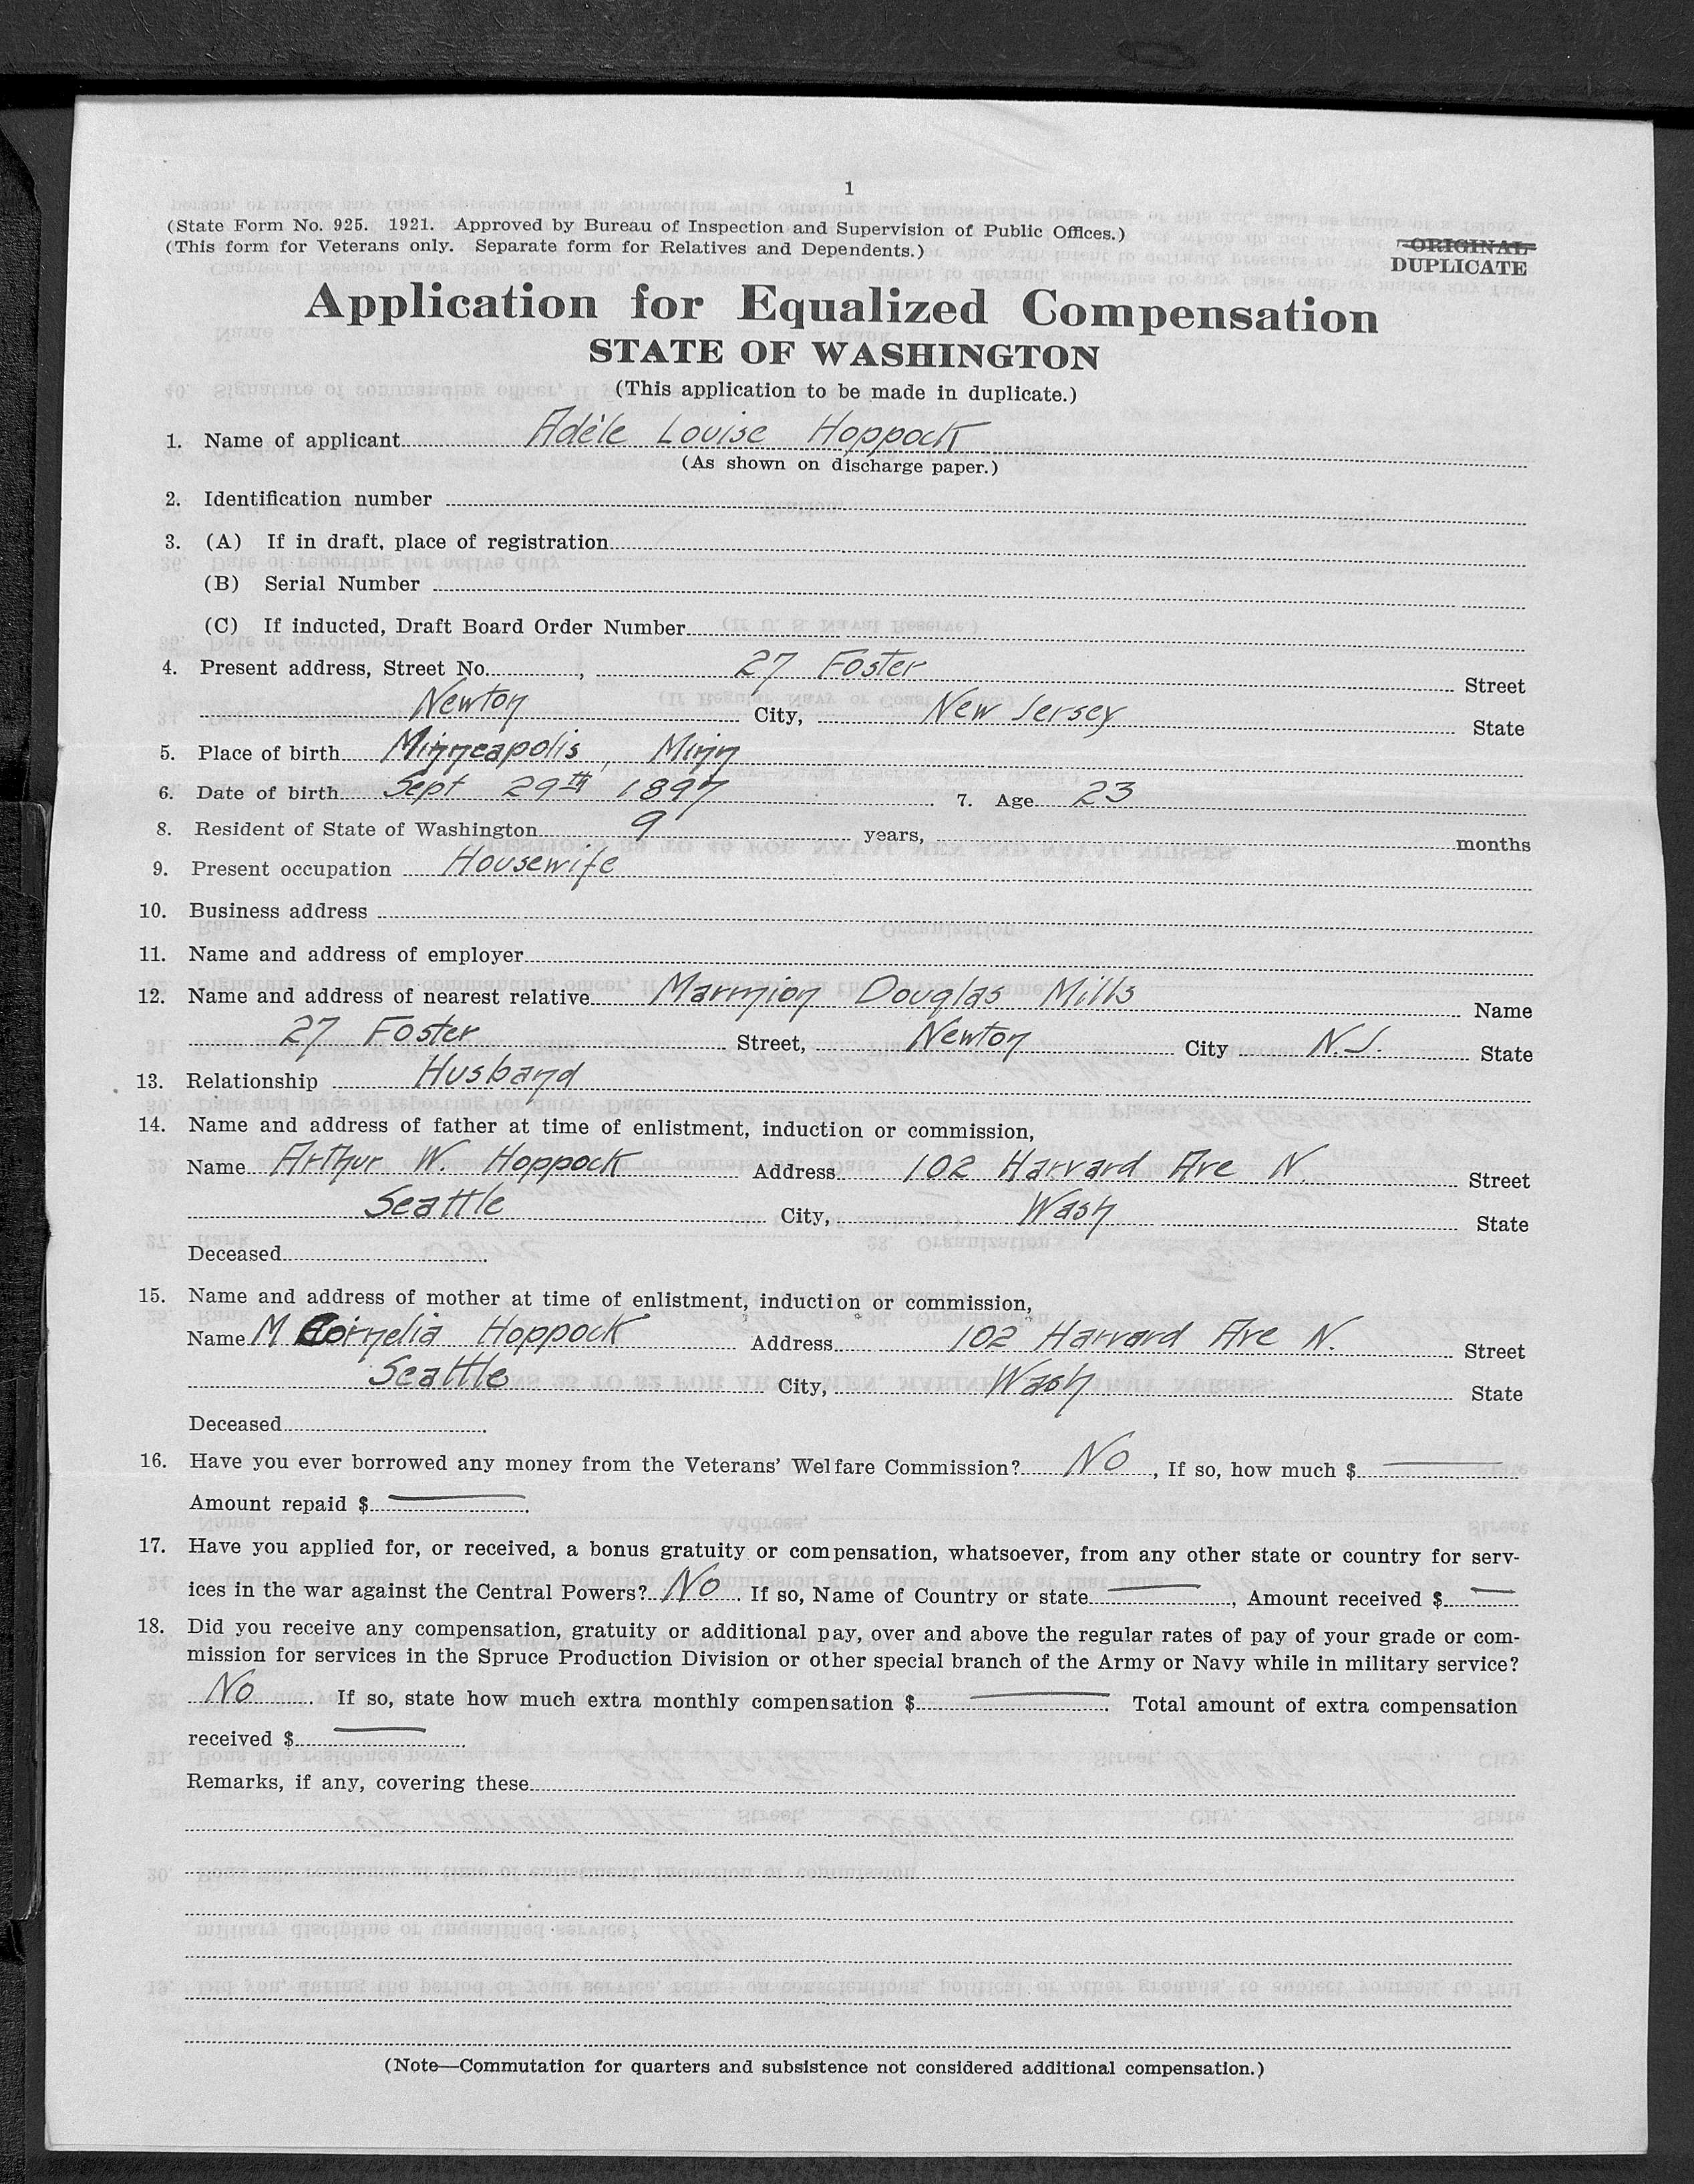 1
(State Form No. 925. 1921. Approved by Bureau of Inspection and Supervision of Public Offices.)
(This form for Veterans only. Separate form for Relatives and Dependents.)
ORIGINAL
DUPLICATE
Application for Equalized Compensation
STATE OF WASHINGTON
(This application to be made in duplicate.)
1. Name of applicant Adèle Louise Hoppock
(As shown on discharge paper.)
2. Identification number
3. (A) If in draft, place of registration
(B) Serial Number
(C) If inducted, Draft Board Order Number
4. Present address, Street No. , 27 Foster Street
Newton City, New Jersey State
5. Place of birth Minneapolis, Minn
6. Date of birth Sept 29th 1897 7. Age 23
8. Resident of State of Washington 9 years, months
9. Present occupation Housewife
10. Business address
11. Name and address of employer
12. Name and address of nearest relative Marmion Douglas Mills Name
27 Foster Street, Newton City N.J. State
13. Relationship Husband
14. Name and address of father at time of enlistment, induction or commission,
Name Arthur W. Hoppock Address 102 Harvard Ave N. Street
Seattle City, Wash State
Deceased
15. Name and address of mother at time of enlistment, induction or commission,
Name M Cornelia Hoppock Address 102 Harvard Ave N. Street
Seattle City, Wash State
Deceased
16. Have you ever borrowed any money from the Veterans' Welfare Commission? No, If so, how much $
Amount repaid $
17. Have you applied for, or received, a bonus gratuity or compensation, whatsoever, from any other state or country for serv-
ices in the war against the Central Powers? No. If so, Name of Country or state , Amount received $
18. Did you receive any compensation, gratuity or additional pay, over and above the regular rates of pay of your grade or com-
mission for services in the Spruce Production Division or other special branch of the Army or Navy while in military service?
No. If so, state how much extra monthly compensation $ . Total amount of extra compensation
received $ .
Remarks, if any, covering these
(Note—Commutation for quarters and subsistence not considered additional compensation.)